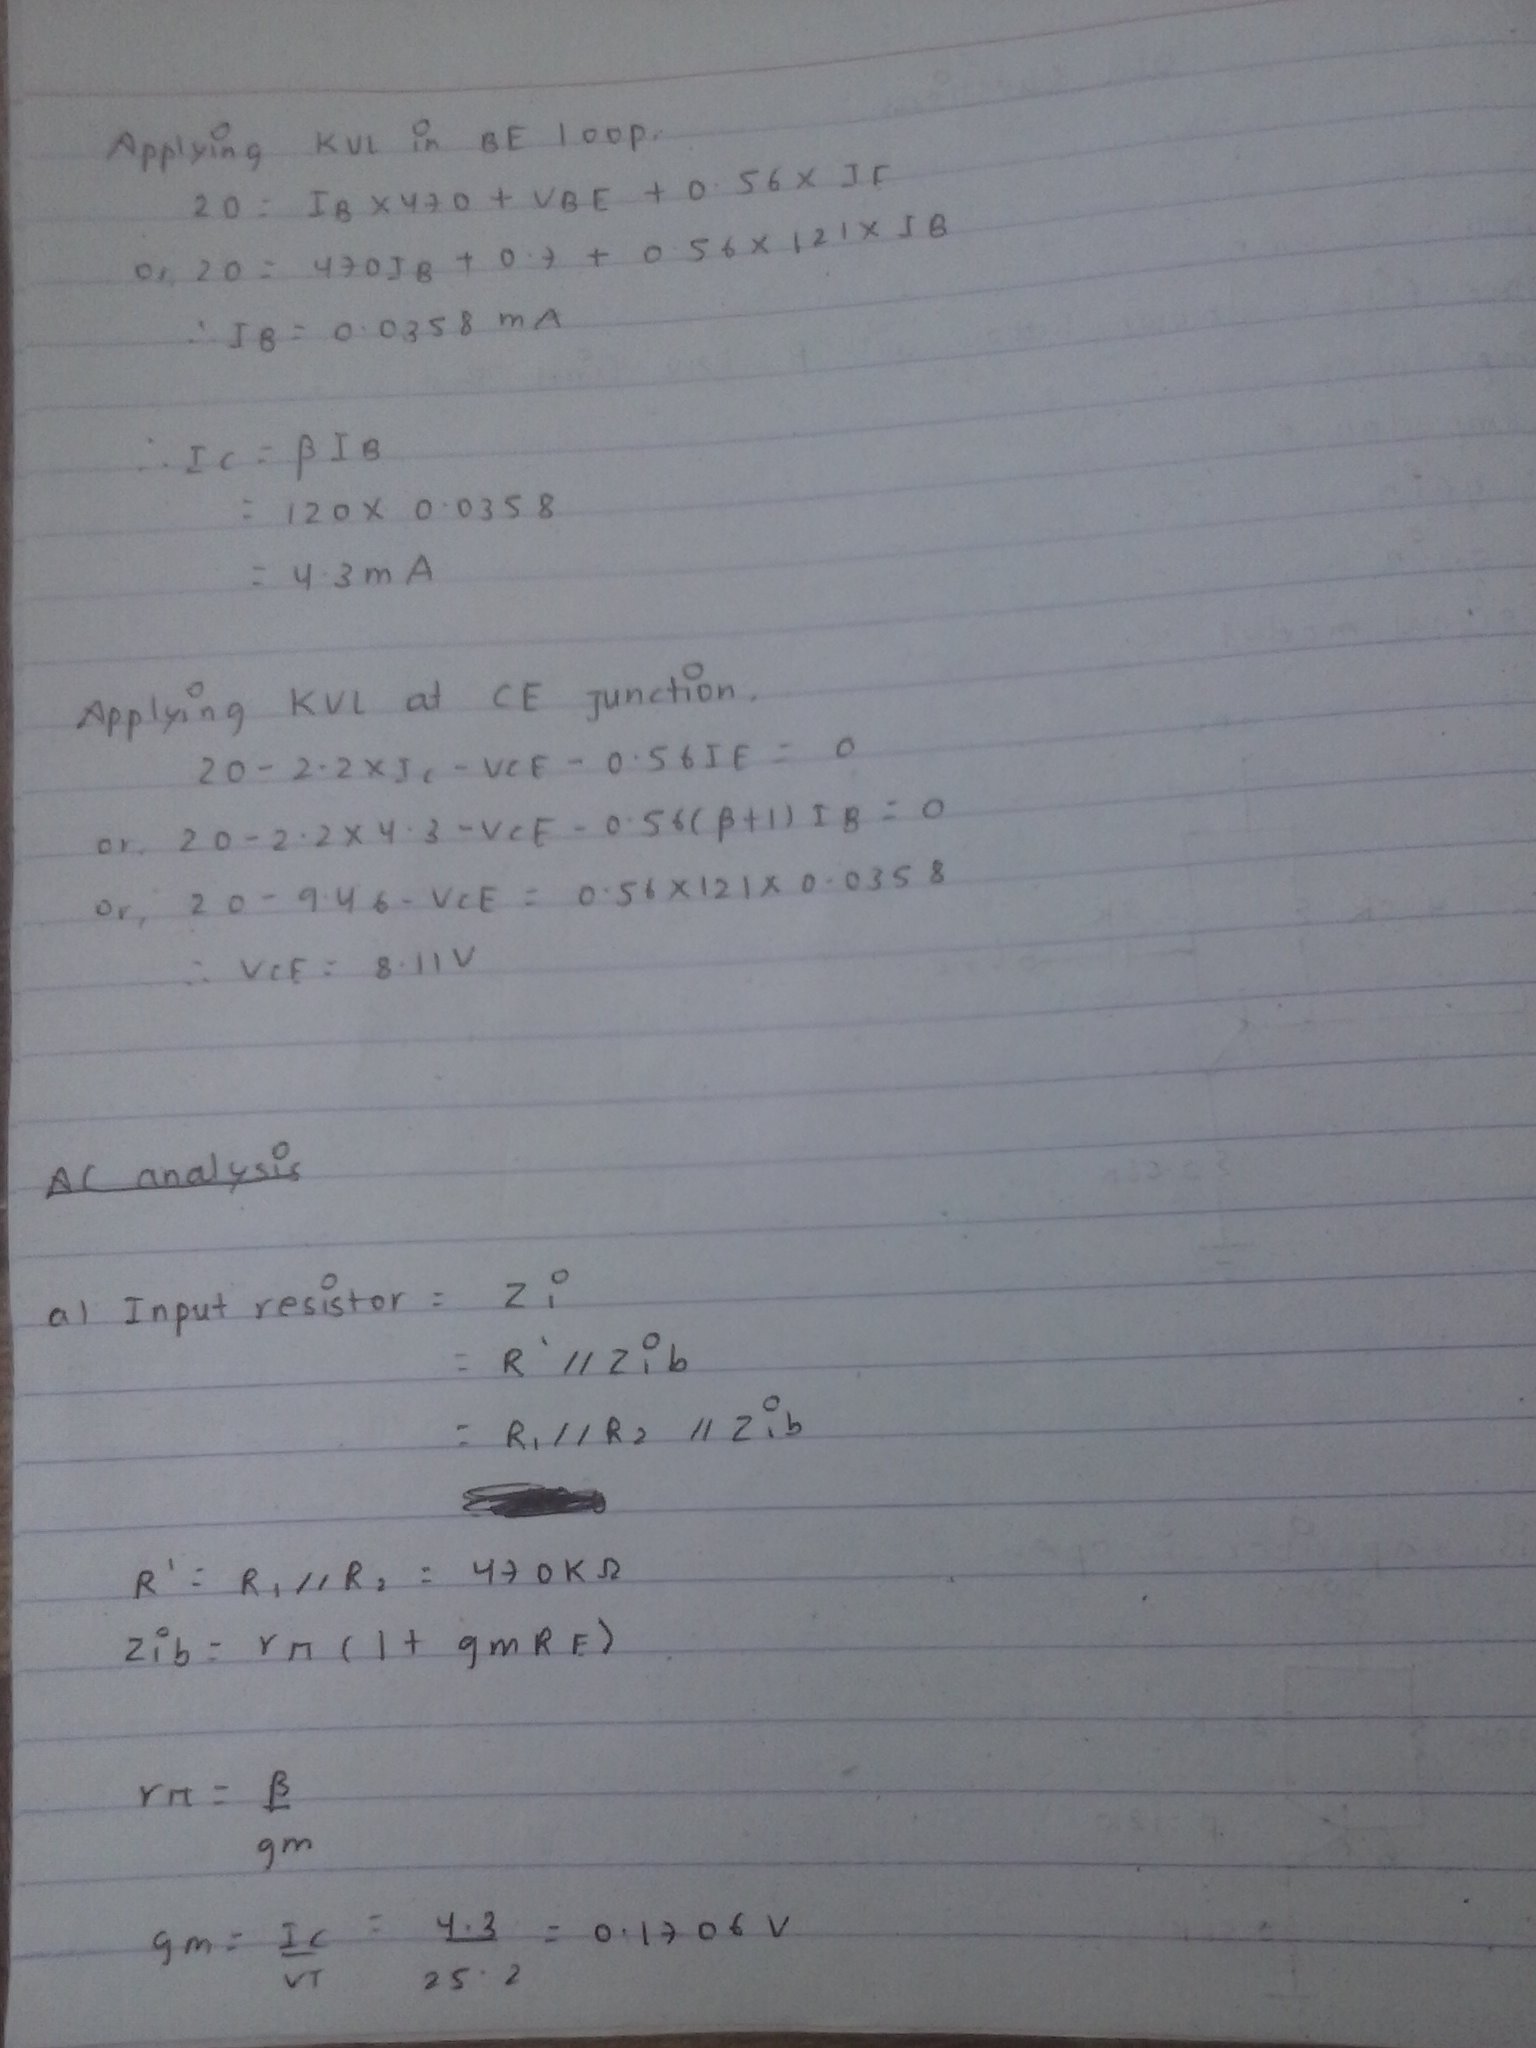 Applying KVL in BE loop.
20 = IB × 470 + VBE + 0.56 × IE
or, 20 = 470IB + 0.7 + 0.56 × 121 × IB
∴ IB = 0.0358 mA
∴ Ic = βIB
= 120 × 0.0358
= 4.3 mA
Applying KVL at CE junction.
20 - 2.2 × Ic - VCE - 0.56IE = 0
or, 20 - 2.2 × 4.3 - VCE - 0.56(β+1) IB = 0
or, 20 - 9.46 - VCE = 0.56 × 121 × 0.0358
∴ VCE = 8.11V
AC analysis
a) Input resistor = Zi
= R' // Zib
= R1 // R2 // Zib
R' = R1 // R2 = 470KΩ
Zib = rπ (1 + gmRE)
rπ = β
gm
gm = Ic = 4.3 = 0.1706 V
VT 25.2